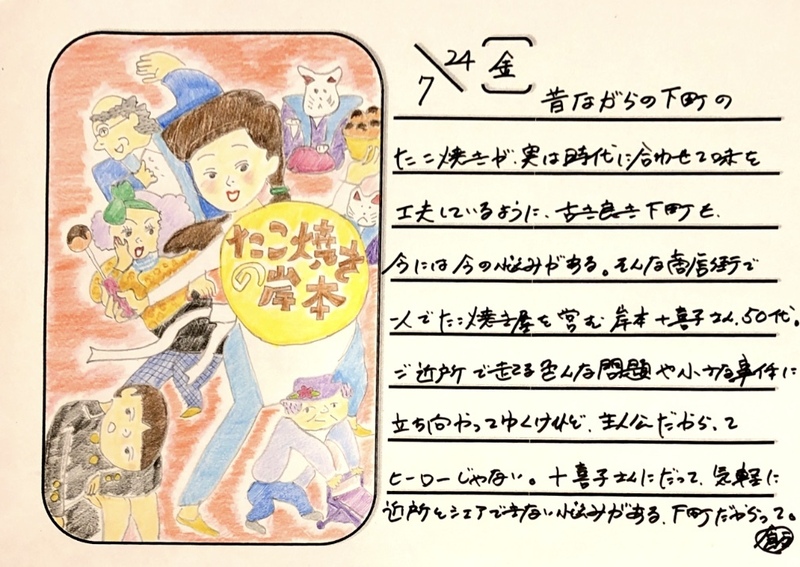 たこ焼き
の岸本
7/24 (金)
昔ながらの下町の
たこ焼きが、実は時代に合わせて味を
工夫しているように、古き良き下町も、
今には今の悩みがある。そんな商店街で
一人でたこ焼き屋を営む岸本十喜子さん、50代。
ご近所で起こる色んな問題や小さな事件に
立ち向かってゆくけれど、主人公だからって
ヒーローじゃない。十喜子さんにだって、気軽に
近所とシェアできない悩みがある、下町だからって。